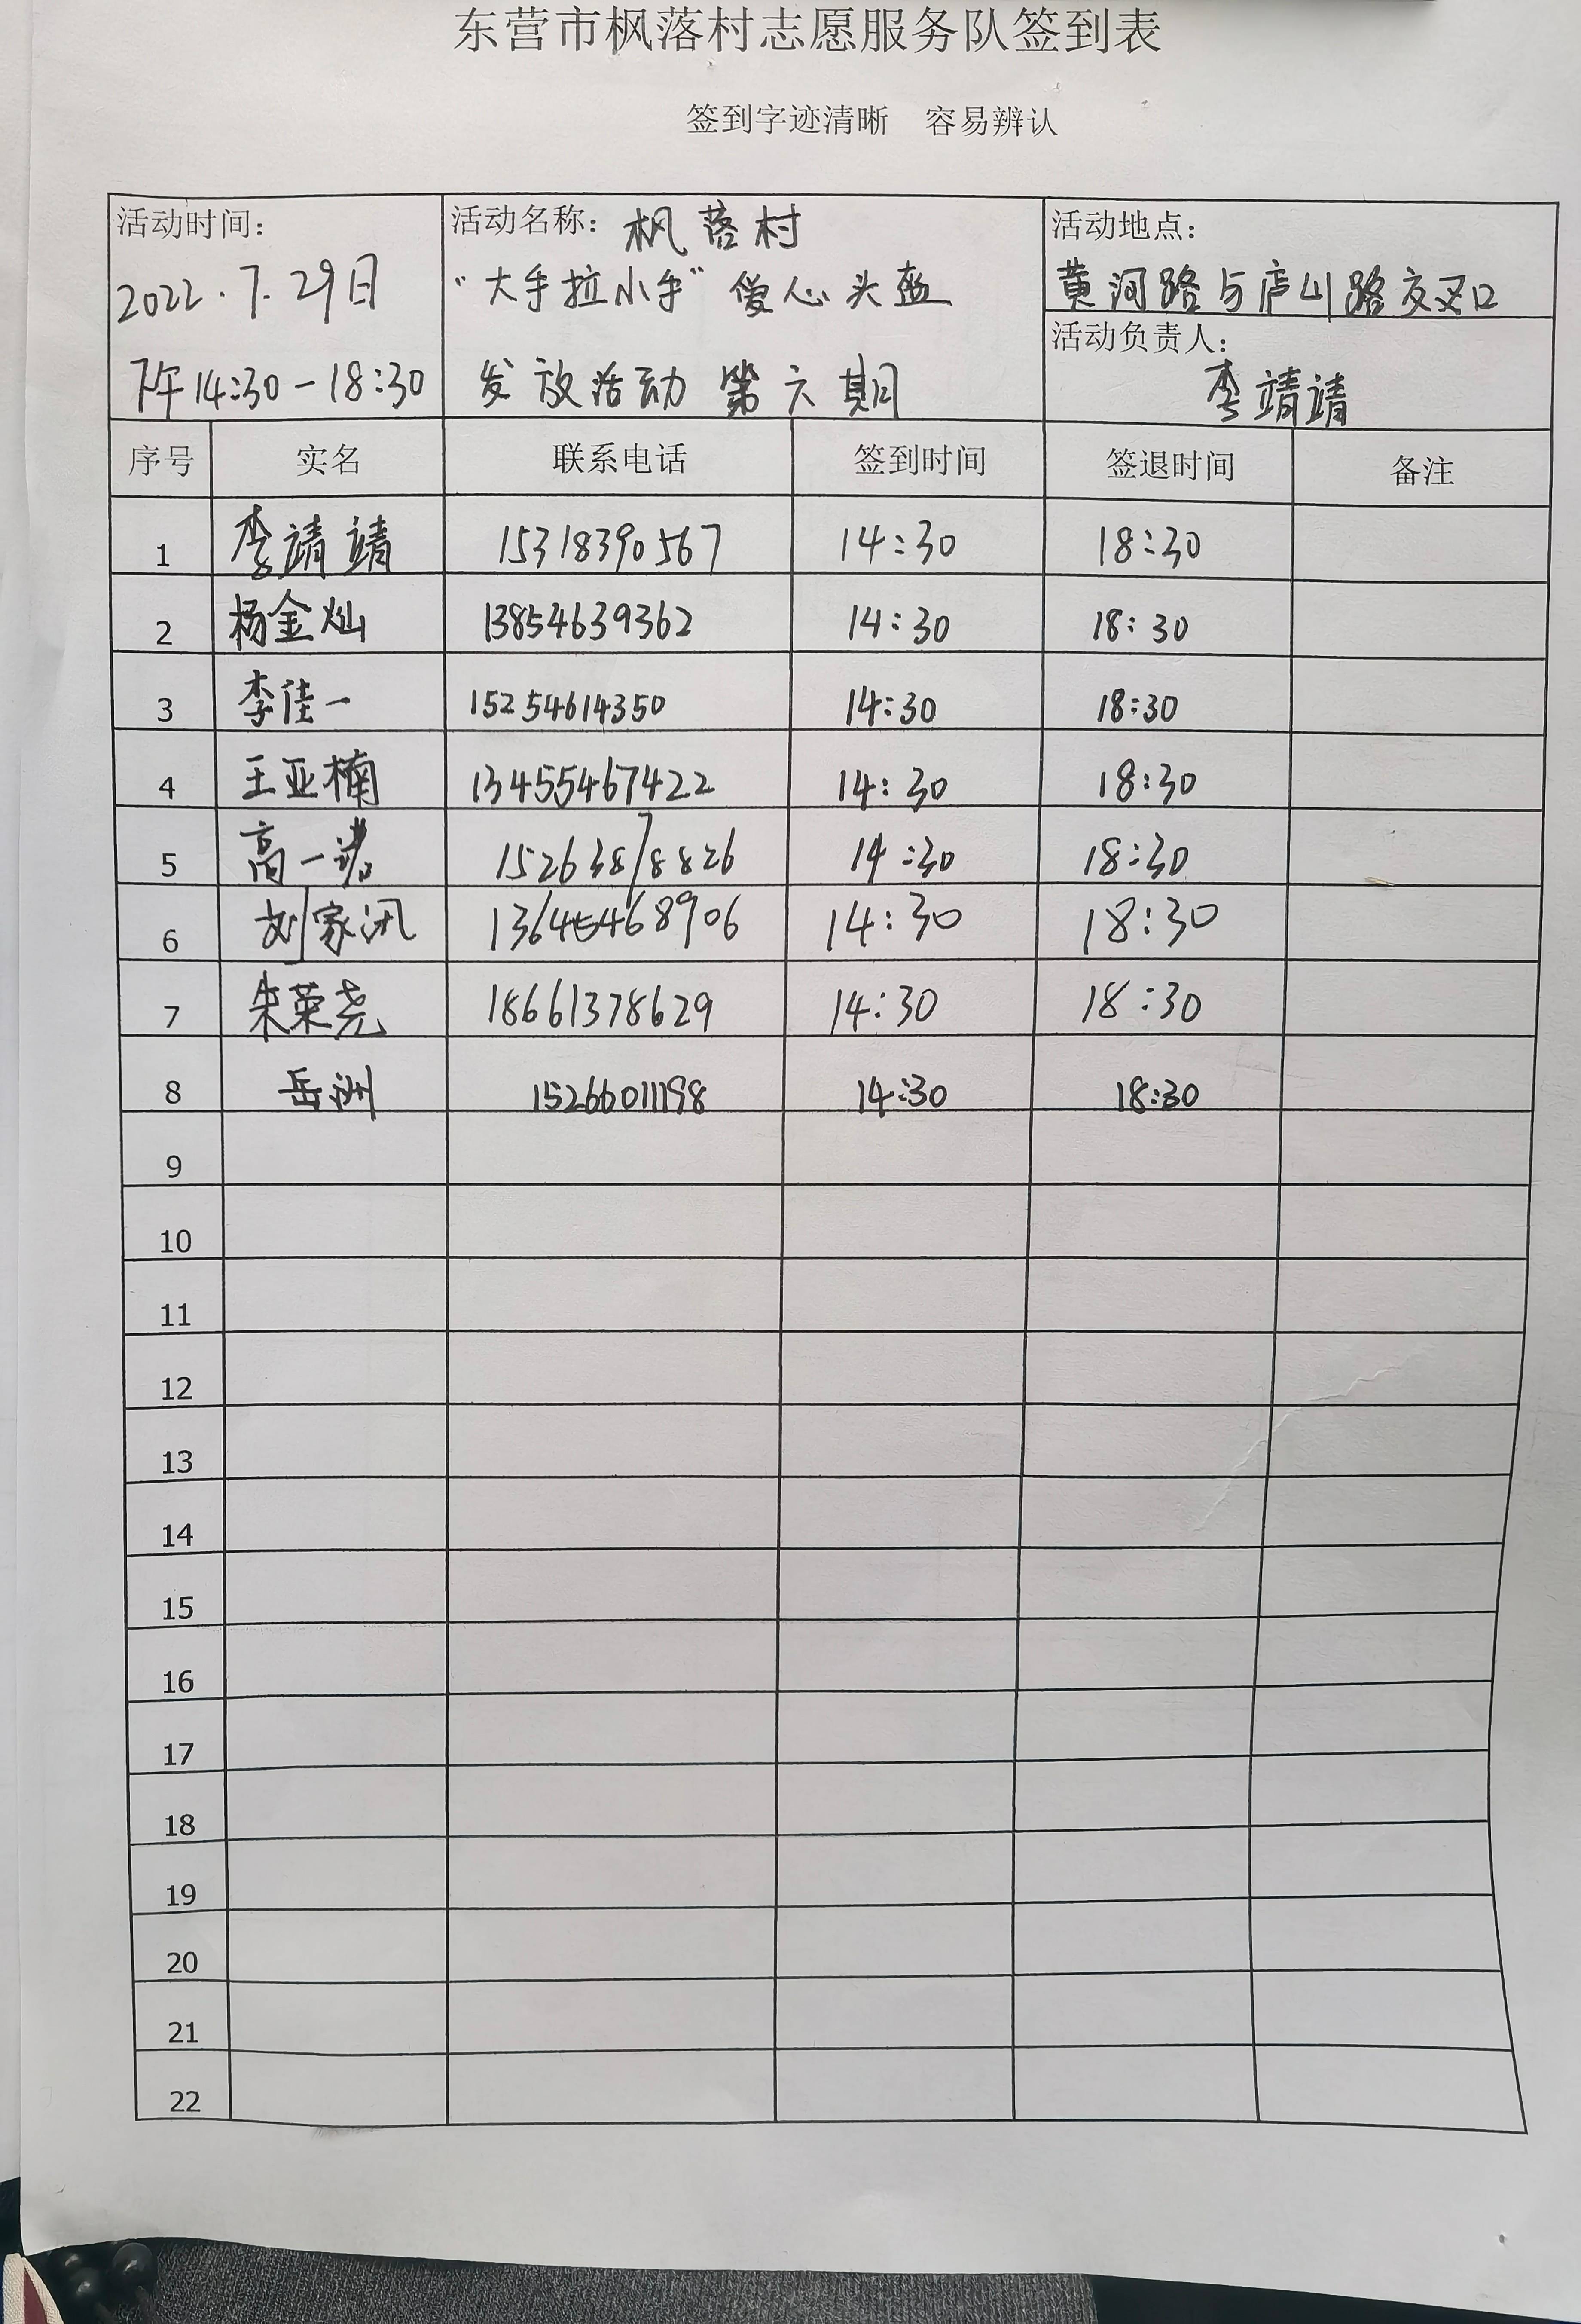 东营市枫落村志愿服务队签到表
签到字迹清晰 容易辨认
活动时间: 活动名称: 枫落村 活动地点:
2022.7.29日 "大手拉小手"爱心头盔 黄河路与庐山路交叉口
下午14:30-18:30 发放活动 第六期 活动负责人: 李靖靖
序号 实名 联系电话 签到时间 签退时间 备注
1 李靖靖 15318390567 14:30 18:30
2 杨金灿 13854639362 14:30 18:30
3 李佳一 15254614350 14:30 18:30
4 王亚楠 13455467422 14:30 18:30
5 高一 15263878826 14:30 18:30
6 刘家汛 13645468906 14:30 18:30
7 朱荣尧 18661378629 14:30 18:30
8 岳洲 15266011198 14:30 18:30
9
10
11
12
13
14
15
16
17
18
19
20
21
22